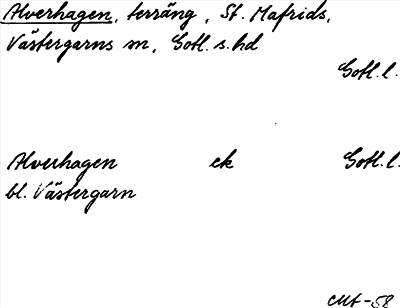 Alverhagen, terräng, St. Mafrids,
Västergarns sn, Gotl. s. hd
Gotl. l.
Alverhagen ek Gotl. l.
bl. Västergarn
-58